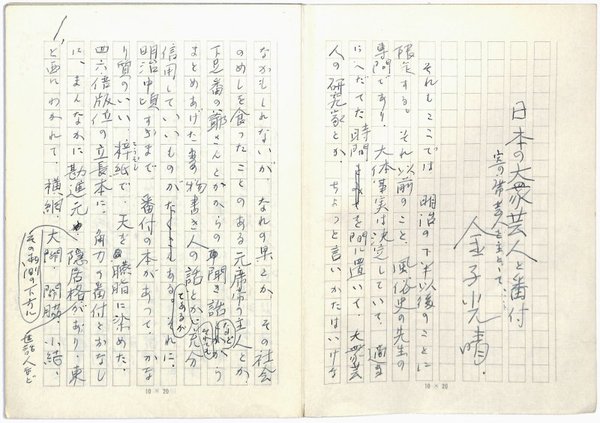 日本の大衆芸人と番付
金子光晴.
それもここでは、明治の下半以後のことに
限定する。それ以前のこと、風俗史の先生の
専門であり、大体事実は決定していて、適当
にへだてた時間を間に置いて、大衆芸
人の研究家とか、ちょっと言いかたはいけな
なかもしれないが、なれの果とか、その社会
のめしを食ったことのある元席亭の主人とか、
下足番の爺さんとかからの聞き話などから
まとめあげた物書き人の話とかで、充分
信用していいものが
であるが
それに、
明治中頃すぎまで番付の本があって、かな
り質のいい梓紙で、天を臙脂に染めた、
四六倍版位の立長本に、角力の番付とおなし
に、まんなかに勘進元、隠居格があり、東
と西にわかれて、横綱、大関、関脇、小結、
その両側の下方に
世話人など
10 × 20
10 × 20